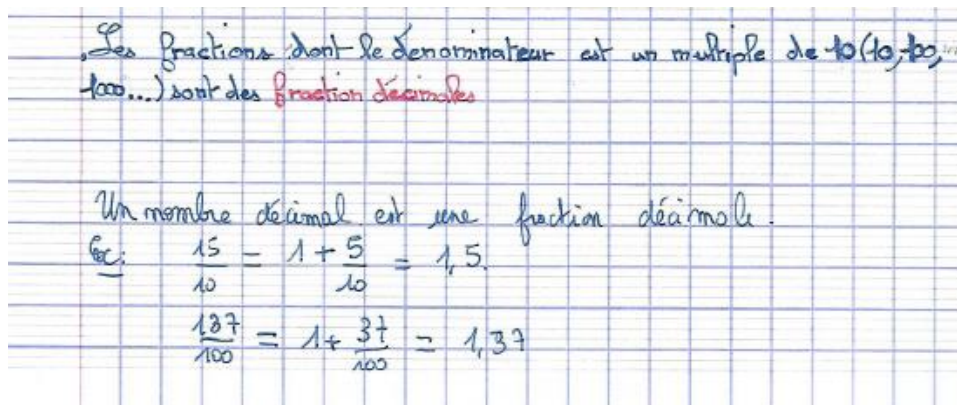 Les fractions dont le denominateur est un multiple de 10 (10, 100,
1000...) sont des fraction décimales
Un nombre décimal est une fraction décimale.
Ex: 15/10 = 1 + 5/10 = 1,5.
137/100 = 1 + 37/100 = 1,37